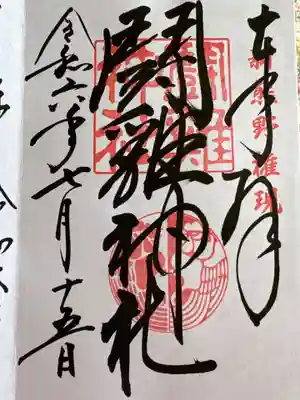 奉拝
新熊野権現
闘雞神社
闘雞神社
令和六年七月十五日